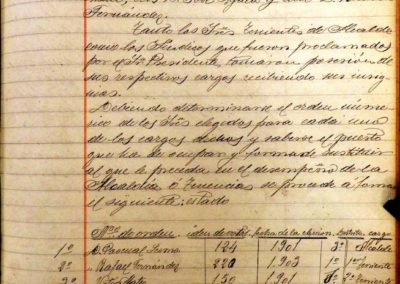 Fernández.
Tanto los Sres Tenientes de Alcalde
como los Síndicos que fueron proclamados
por el Sr. Presidente, tomaron posesión de
sus respectivos cargos recibiendo sus insig
nias.
Debiendo determinarse el orden numé
rico de los Sres elegidos para cada uno
de los cargos dichos y saberse el puesto
que ha de ocupar y forma de sustituir
al que le preceda en el desempeño de la
Alcaldia ó Tenencias se procede a formar
el siguiente estado
Nº de orden. iden de votos. fecha de la eleccion. Distrito. cargo
1º D. Pascual 124 1901 3º Alcalde
2º " Rafael Fernández 220 1903 1º 1er Teniente
3º 130 1901 2º Teniente